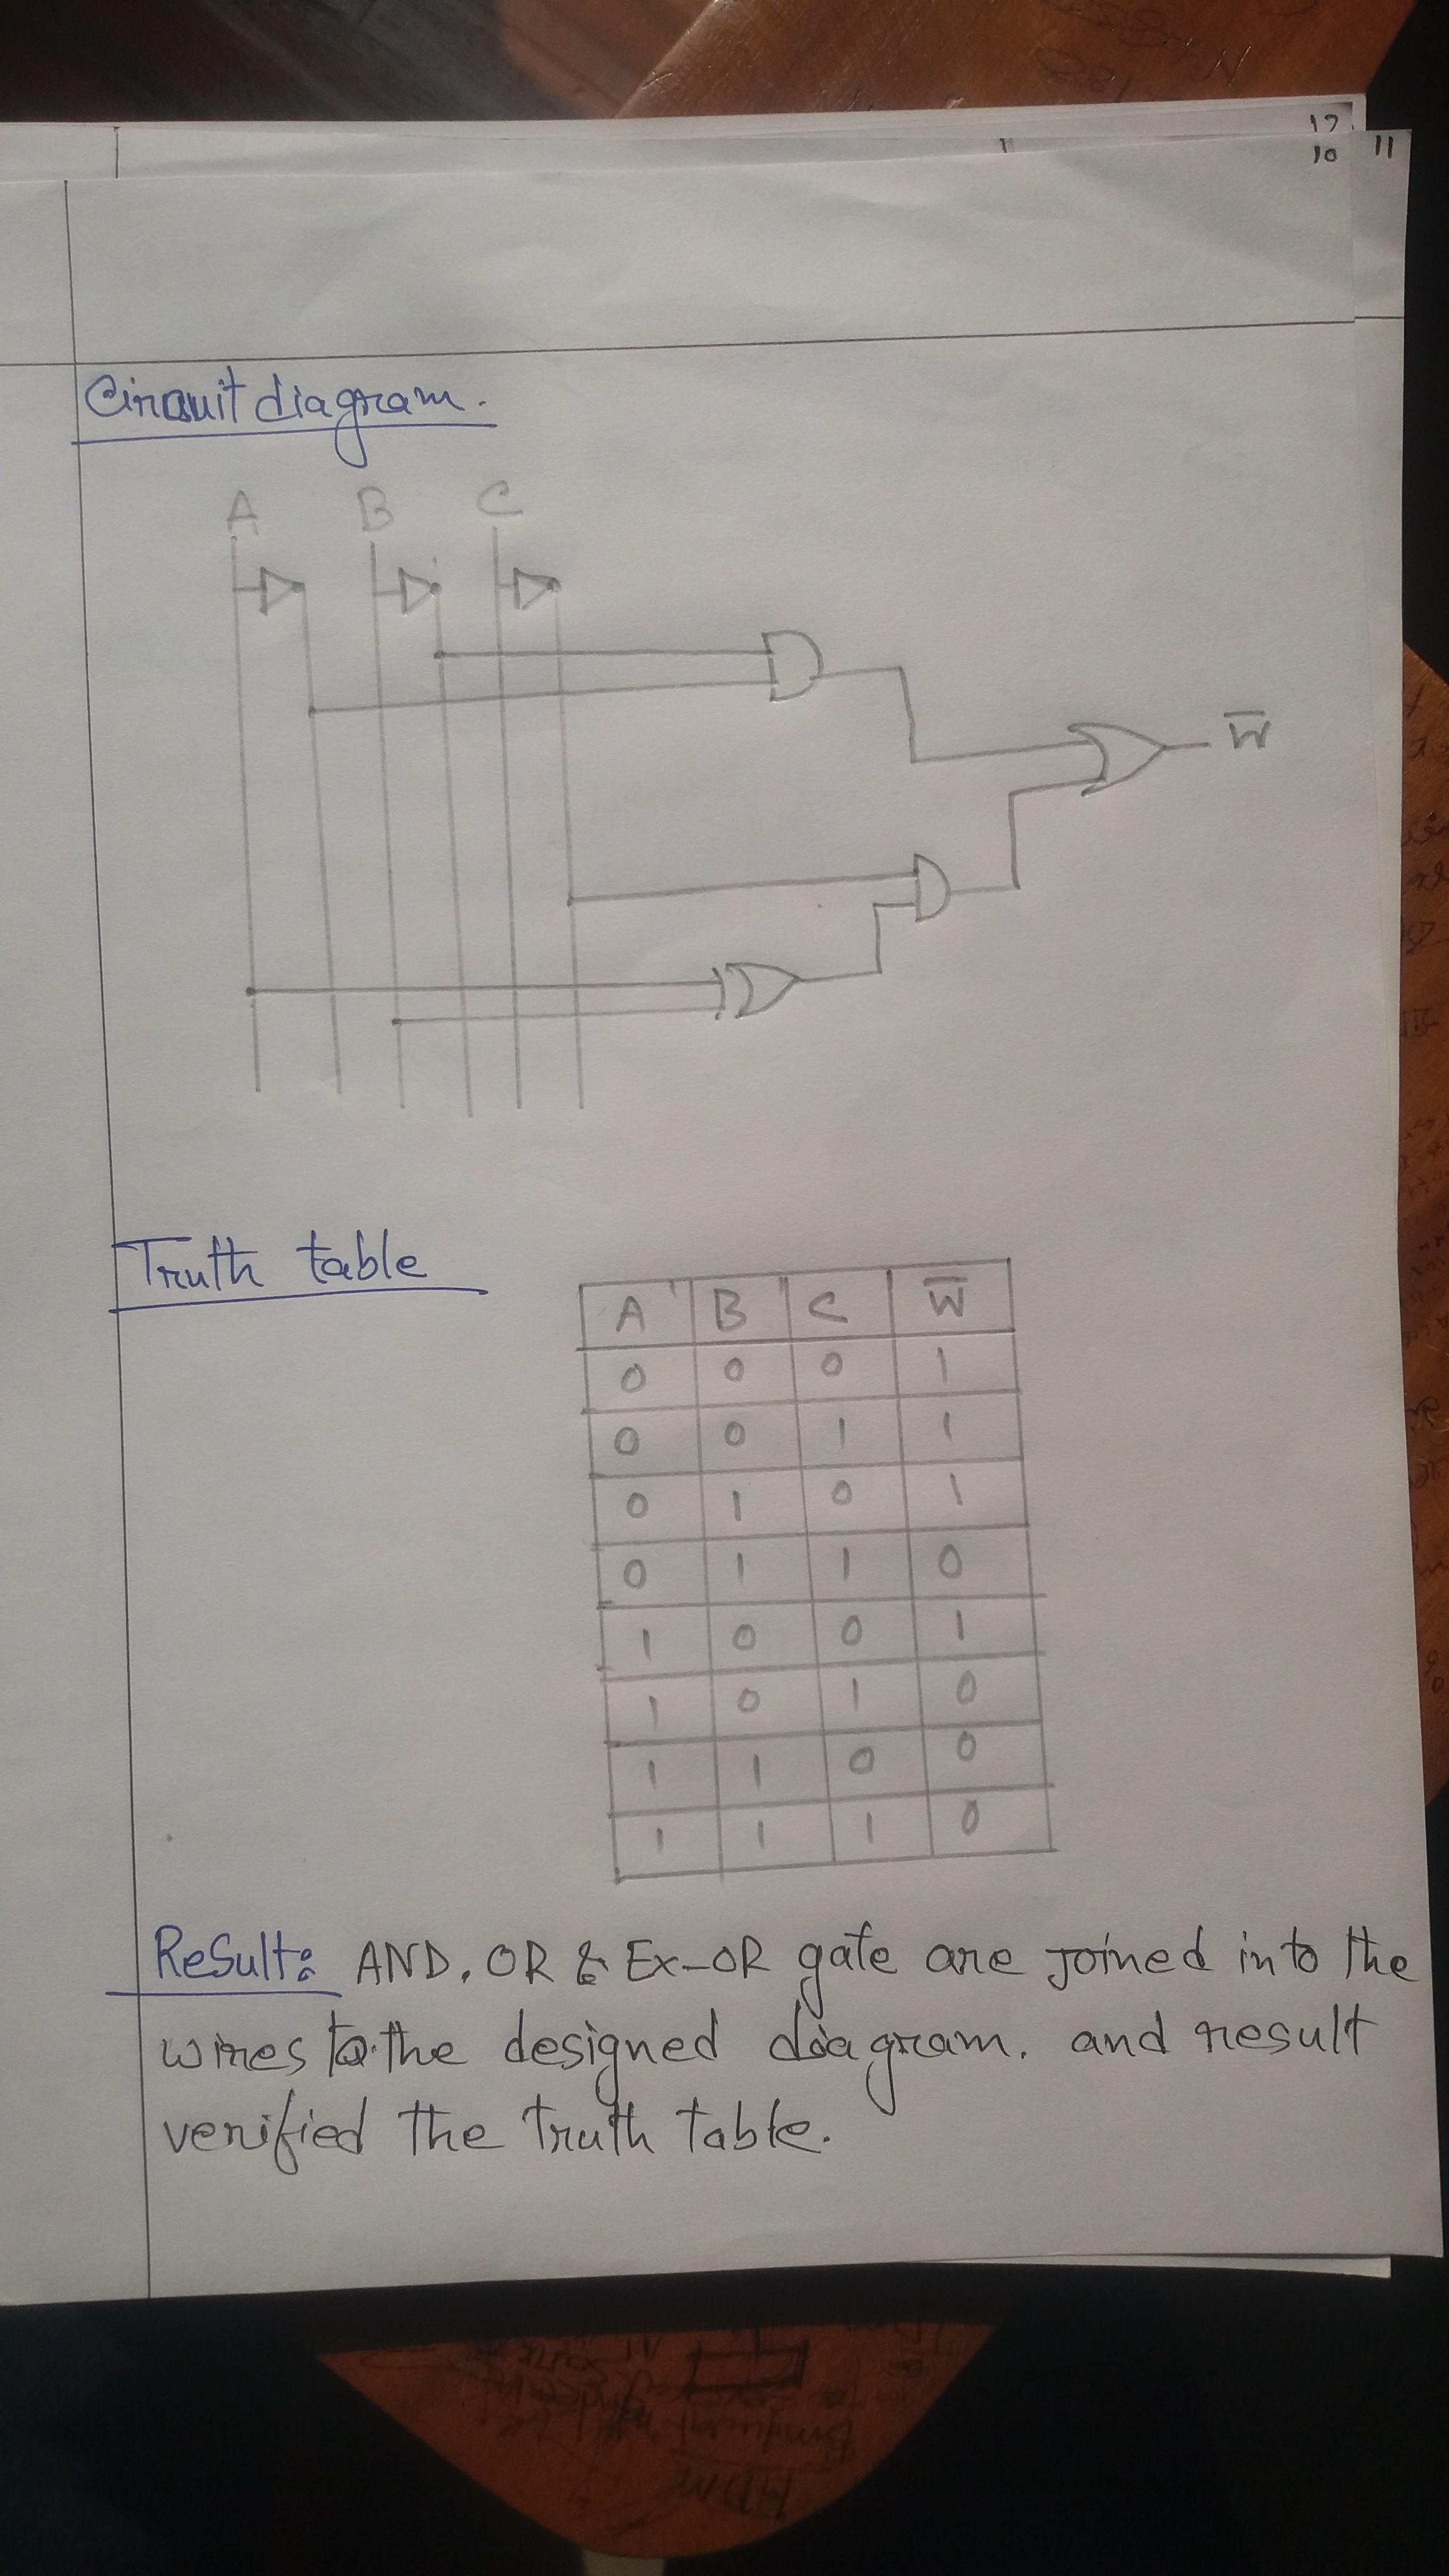 12
10 11
Circuit diagram.
A B C
W̅
Truth table
A B C W̅
0 0 0 1
0 0 1 1
0 1 0 1
0 1 1 0
1 0 0 1
1 0 1 0
1 1 0 0
1 1 1 0
Result: AND, OR & Ex-OR gate are joined into the
wires to the designed diagram. and result
verified the truth table.